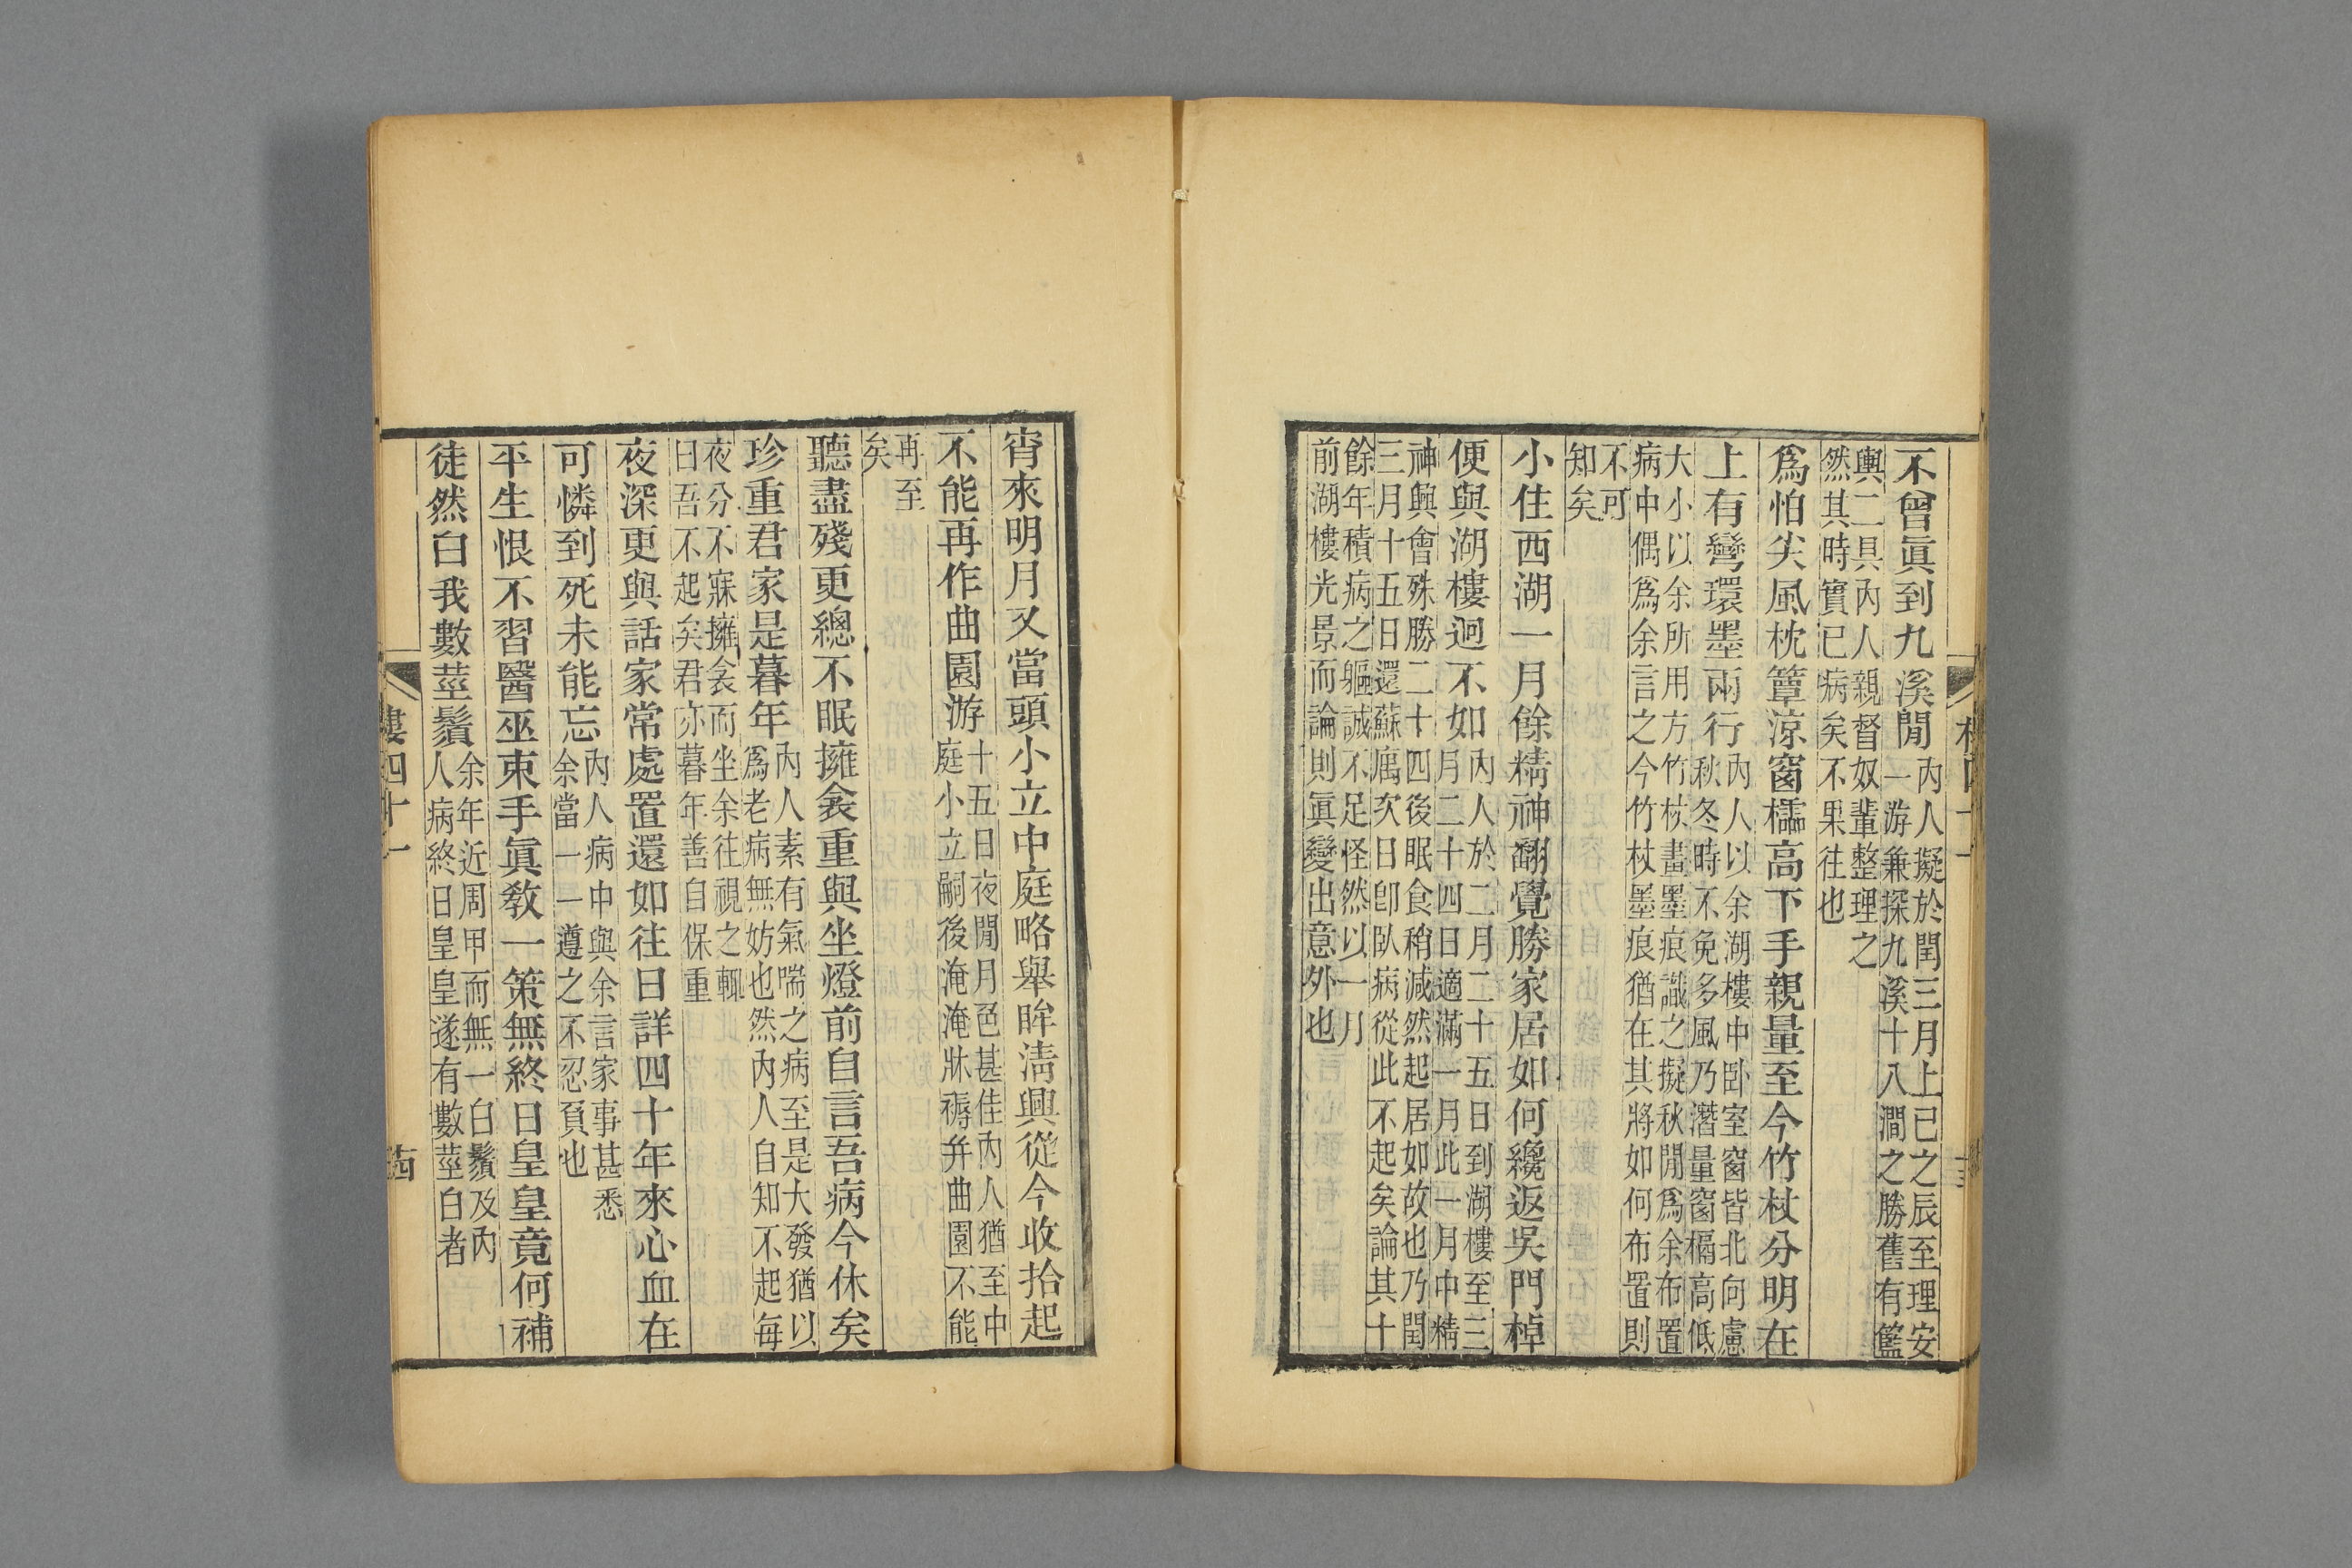 不曾眞到九溪閒內人擬於閏三月上巳之辰至理安
一游兼探九溪十八澗之勝舊有籃
輿二具內人親督奴輩整理之
然其時實已病矣不果往也
爲怕尖風枕簟涼窗櫺高下手親量至今竹杖分明在
上有彎環墨兩行內人以余湖樓中卧室窗皆北向慮
秋冬時不免多風乃潛量窗槅高低
大小以余所用方竹杖畫墨痕識之擬秋閒爲余布置
病中偶爲余言之今竹杖墨痕猶在其將如何布置則
不可
知矣
小住西湖一月餘精神翻覺勝家居如何纔返吳門棹
便與湖樓迥不如內人於二月二十五日到湖樓至三
月二十四日適滿一月此一月中精
神興會殊勝二十四後眠食稍減然起居如故也乃閏
三月十五日還蘇寓次日卽卧病從此不起矣論其十
餘年積病之軀誠不足怪然以一月
前湖樓光景而論則眞變出意外也
宵來明月又當頭小立中庭略舉眸淸興從今收拾起
不能再作曲園游十五日夜閒月色甚佳內人猶至中
庭小立嗣後淹淹牀褥幷曲園不能
再至
矣
聽盡殘更總不眠擁衾重與坐燈前自言吾病今休矣
珍重君家是暮年內人素有氣喘之病至是大發猶以
爲老病無妨也然內人自知不起每
夜分不寐擁衾而坐余往視之輒
曰吾不起矣君亦暮年善自保重
夜深更與話家常處置還如往日詳四十年來心血在
可憐到死未能忘內人病中與余言家事甚悉
余當一一遵之不忍負也
平生恨不習醫巫束手眞敎一策無終日皇皇竟何補
徒然白我數莖鬚余年近周甲而無一白鬚及內
人病終日皇皇遂有數莖白者
樓四十一